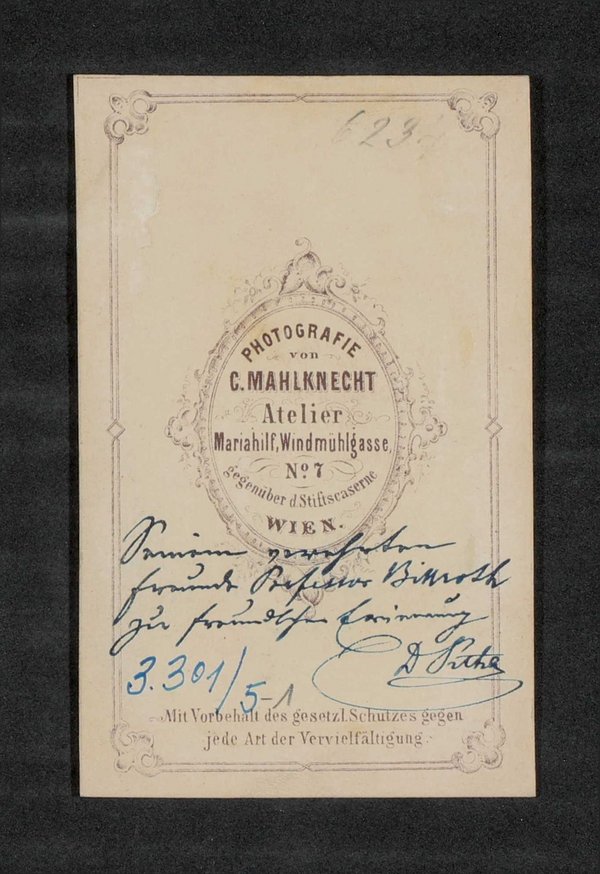 623
PHOTOGRAFIE
von
C. MAHLKNECHT
Atelier
Mariahilf, Windmühlgasse,
No. 7
gegenüber d. Stiftscaserne
WIEN.
Seinem verehrten
Freunde Professor Billroth
zur freundlichen Erinnerung
D Pitha
3.301/5-1
Mit Vorbehalt des gesetzl. Schutzes gegen
jede Art der Vervielfältigung.